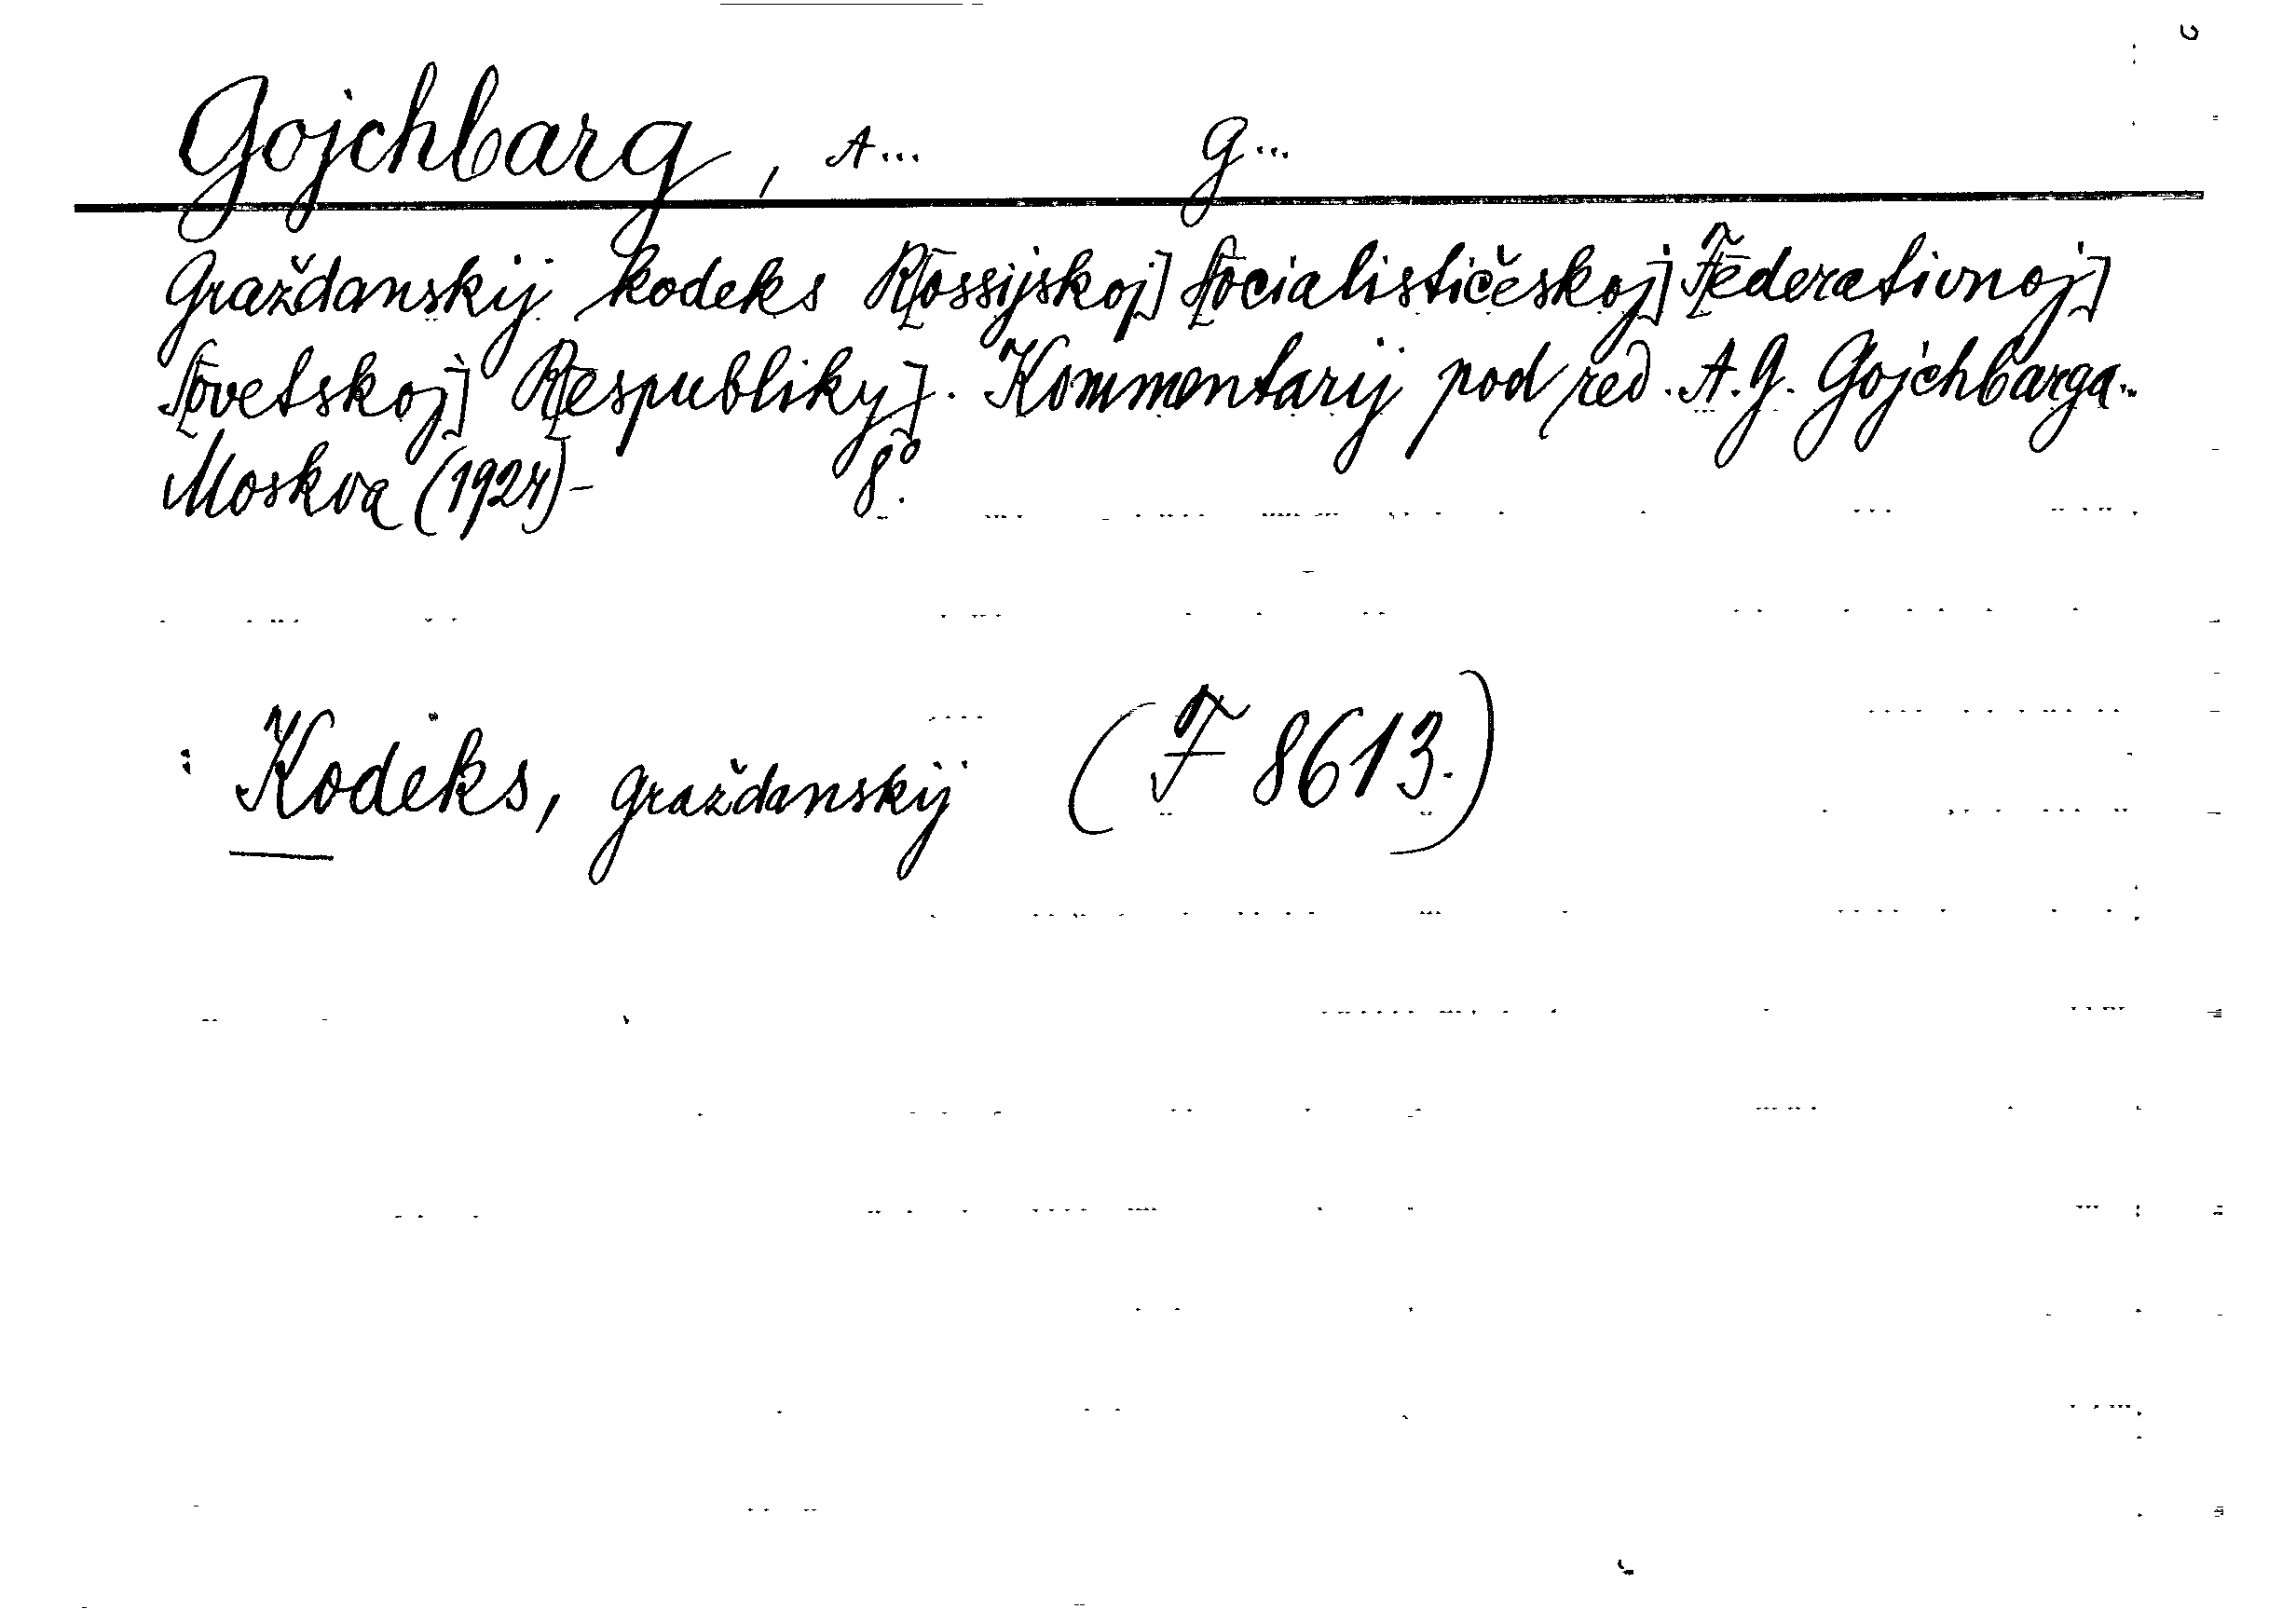 Gojchbarg, A... G...
Graždanskij kodeks R[ossijskoj] S[ocialističeskoj] F[ederativnoj]
S[ovetskoj] R[espubliky]. Kommentarij pod red. A. G. Gojchbarga..
Moskva (1924)- 8°.
: Kodeks, graždanskij (F 8613.)